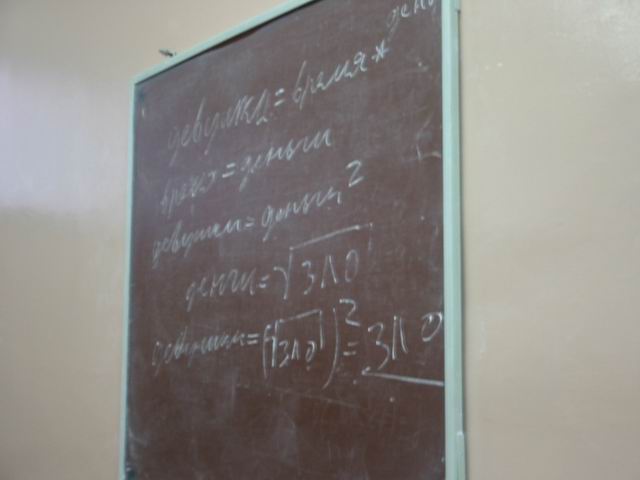 девушка = время * день
время = деньги
девушки = деньги²
деньги = √зло
девушки = (√зло)² = зло